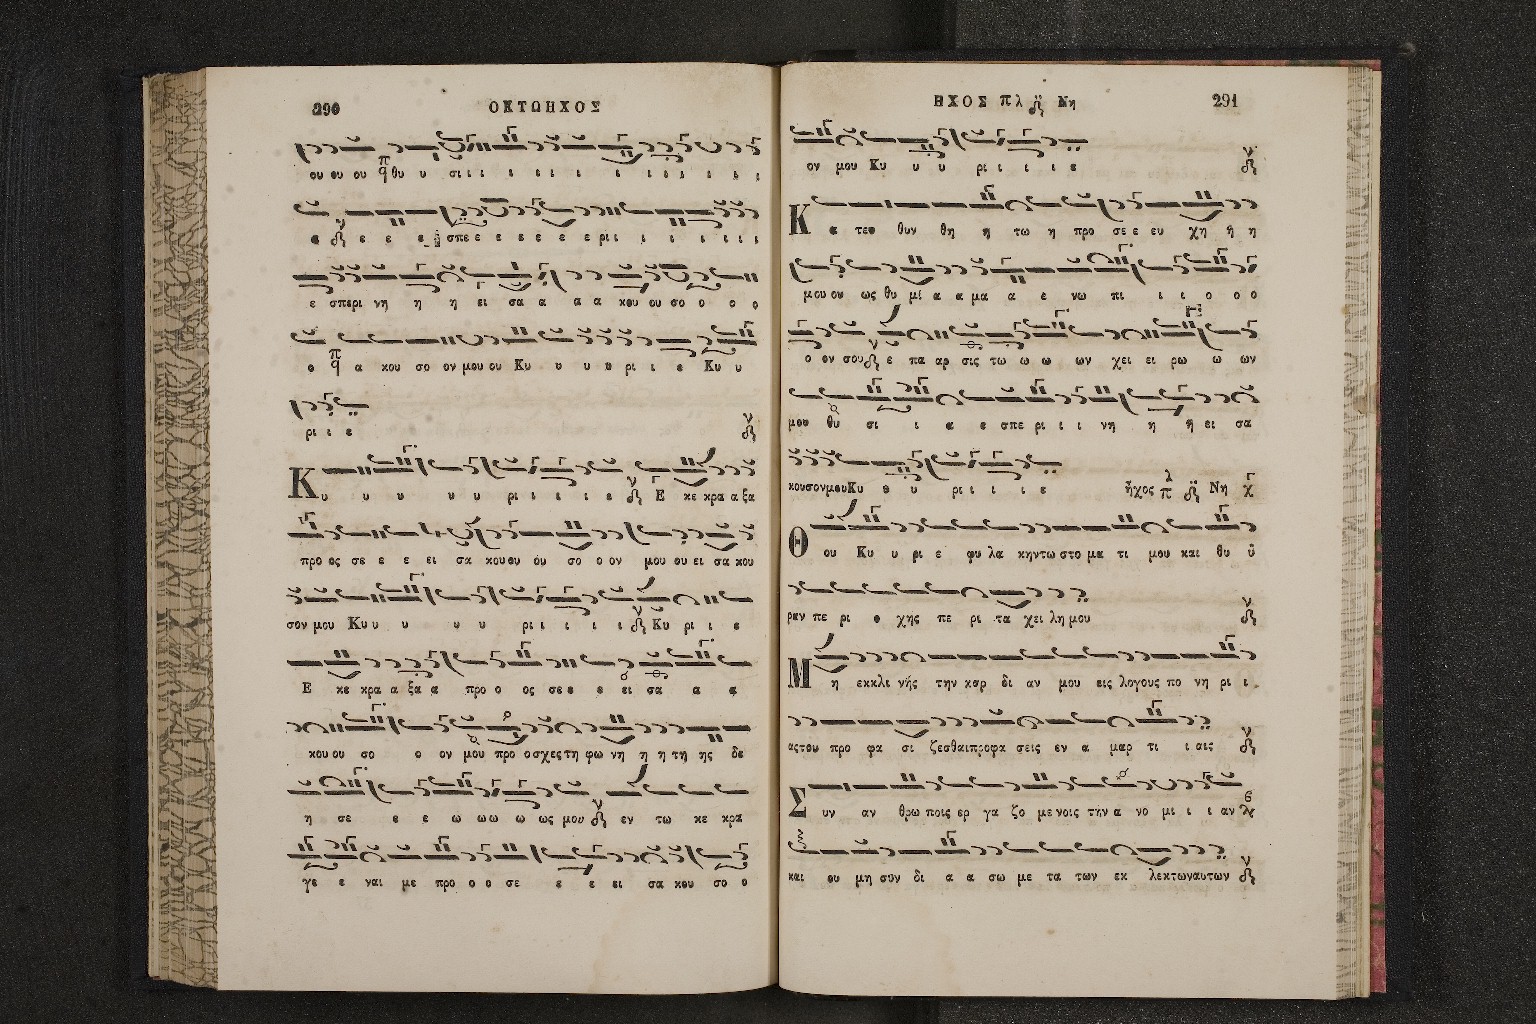 290 ΟΚΤΩΗΧΟΣ
ου ου ου θυ υ σι ι ι ι ι ι ι ι ι ι ι ι ι ι
ε ε ε ε σπε ε ε ε ε ε ε ρι ι ι ι ι ι ι ι
ε σπερι νη η η ει σα α α α κου ου σο ο ο ο
ο α κου σο ον μου ου Κυ υ υ υ ρι ι ε Κυ υ
ρι ι ε
Κυ υ υ υ υ υ ρι ι ι ι ε Ε κε κρα α ξα
προ ος σε ε ε ε ει σα κου ου ου σο ο ον μου ου ει σα κου
σον μου Κυ υ υ υ υ υ ρι ι ι ι ι Κυ ρι ι ε
Ε κε κρα α ξα α προ ο ος σε ε ε ε ει σα α α
κου ου σο ο ον μου προ ο σχες τη φω νη η η τη ης δε
η σε ε ε ω ω ω ω ως μου εν τω κε κρα
γε ε ναι με προ ο ο σε ε ε ει σα κου σο ο
ΗΧΟΣ πλ Νη 291
ον μου Κυ υ υ ρι ι ι ι ε
Κα τευ θυν θη η τω η προ σε ε ευ χη η η
μου ου ως θυ μί α α μα α ε νω πι ι ι ο ο ο
ο ον σου ε πα αρ σις τω ω ω ων χει ει ρω ω ων
μου θυ σι ι α ε σπε ρι ι ι νη η ή ει σα
κουσονμουΚυ υ υ ρι ι ι ι ε ἦχος πλ Νη
Θου Κυ υ ρι ε φυ λα κην τω στο μα τι μου και θυ ύ
ραν πε ρι ο χης πε ρι τα χει λη μου
Μη εκκλι νής την καρ δι αν μου εις λογους πο νη ρι ι
αςτου προ φα σι ζεσθαιπροφα σεις εν α μαρ τι ι αις
Συν αν θρω ποις ερ γα ζο με νοις την α νο μι ι ι αν
και ου μη συν δι α α σω με τα των εκ λεκτωναυτων